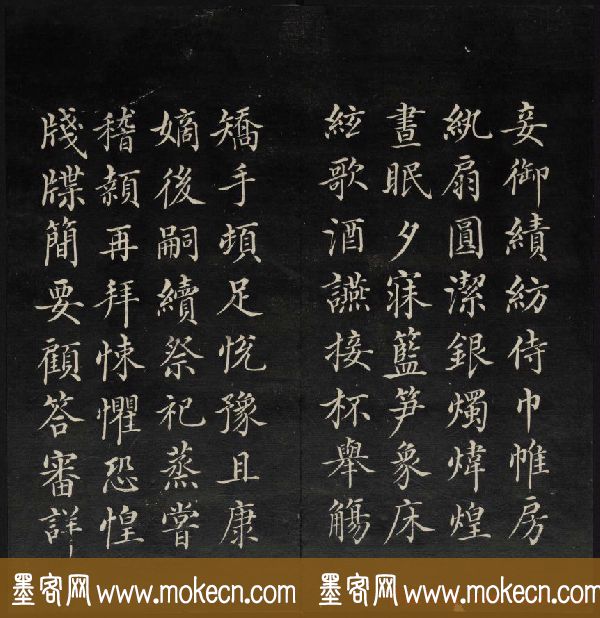 妾御績紡侍巾帷房
紈扇圓潔銀燭煒煌
晝眠夕寐籃笋象床
絃歌酒讌接杯舉觴
矯手頓足悅豫且康
嫡後嗣續祭祀蒸嘗
稽顙再拜悚懼恐惶
牋牒簡要顧答審詳
墨客网 www.mokecn.com 墨客网 www.mokecn.com